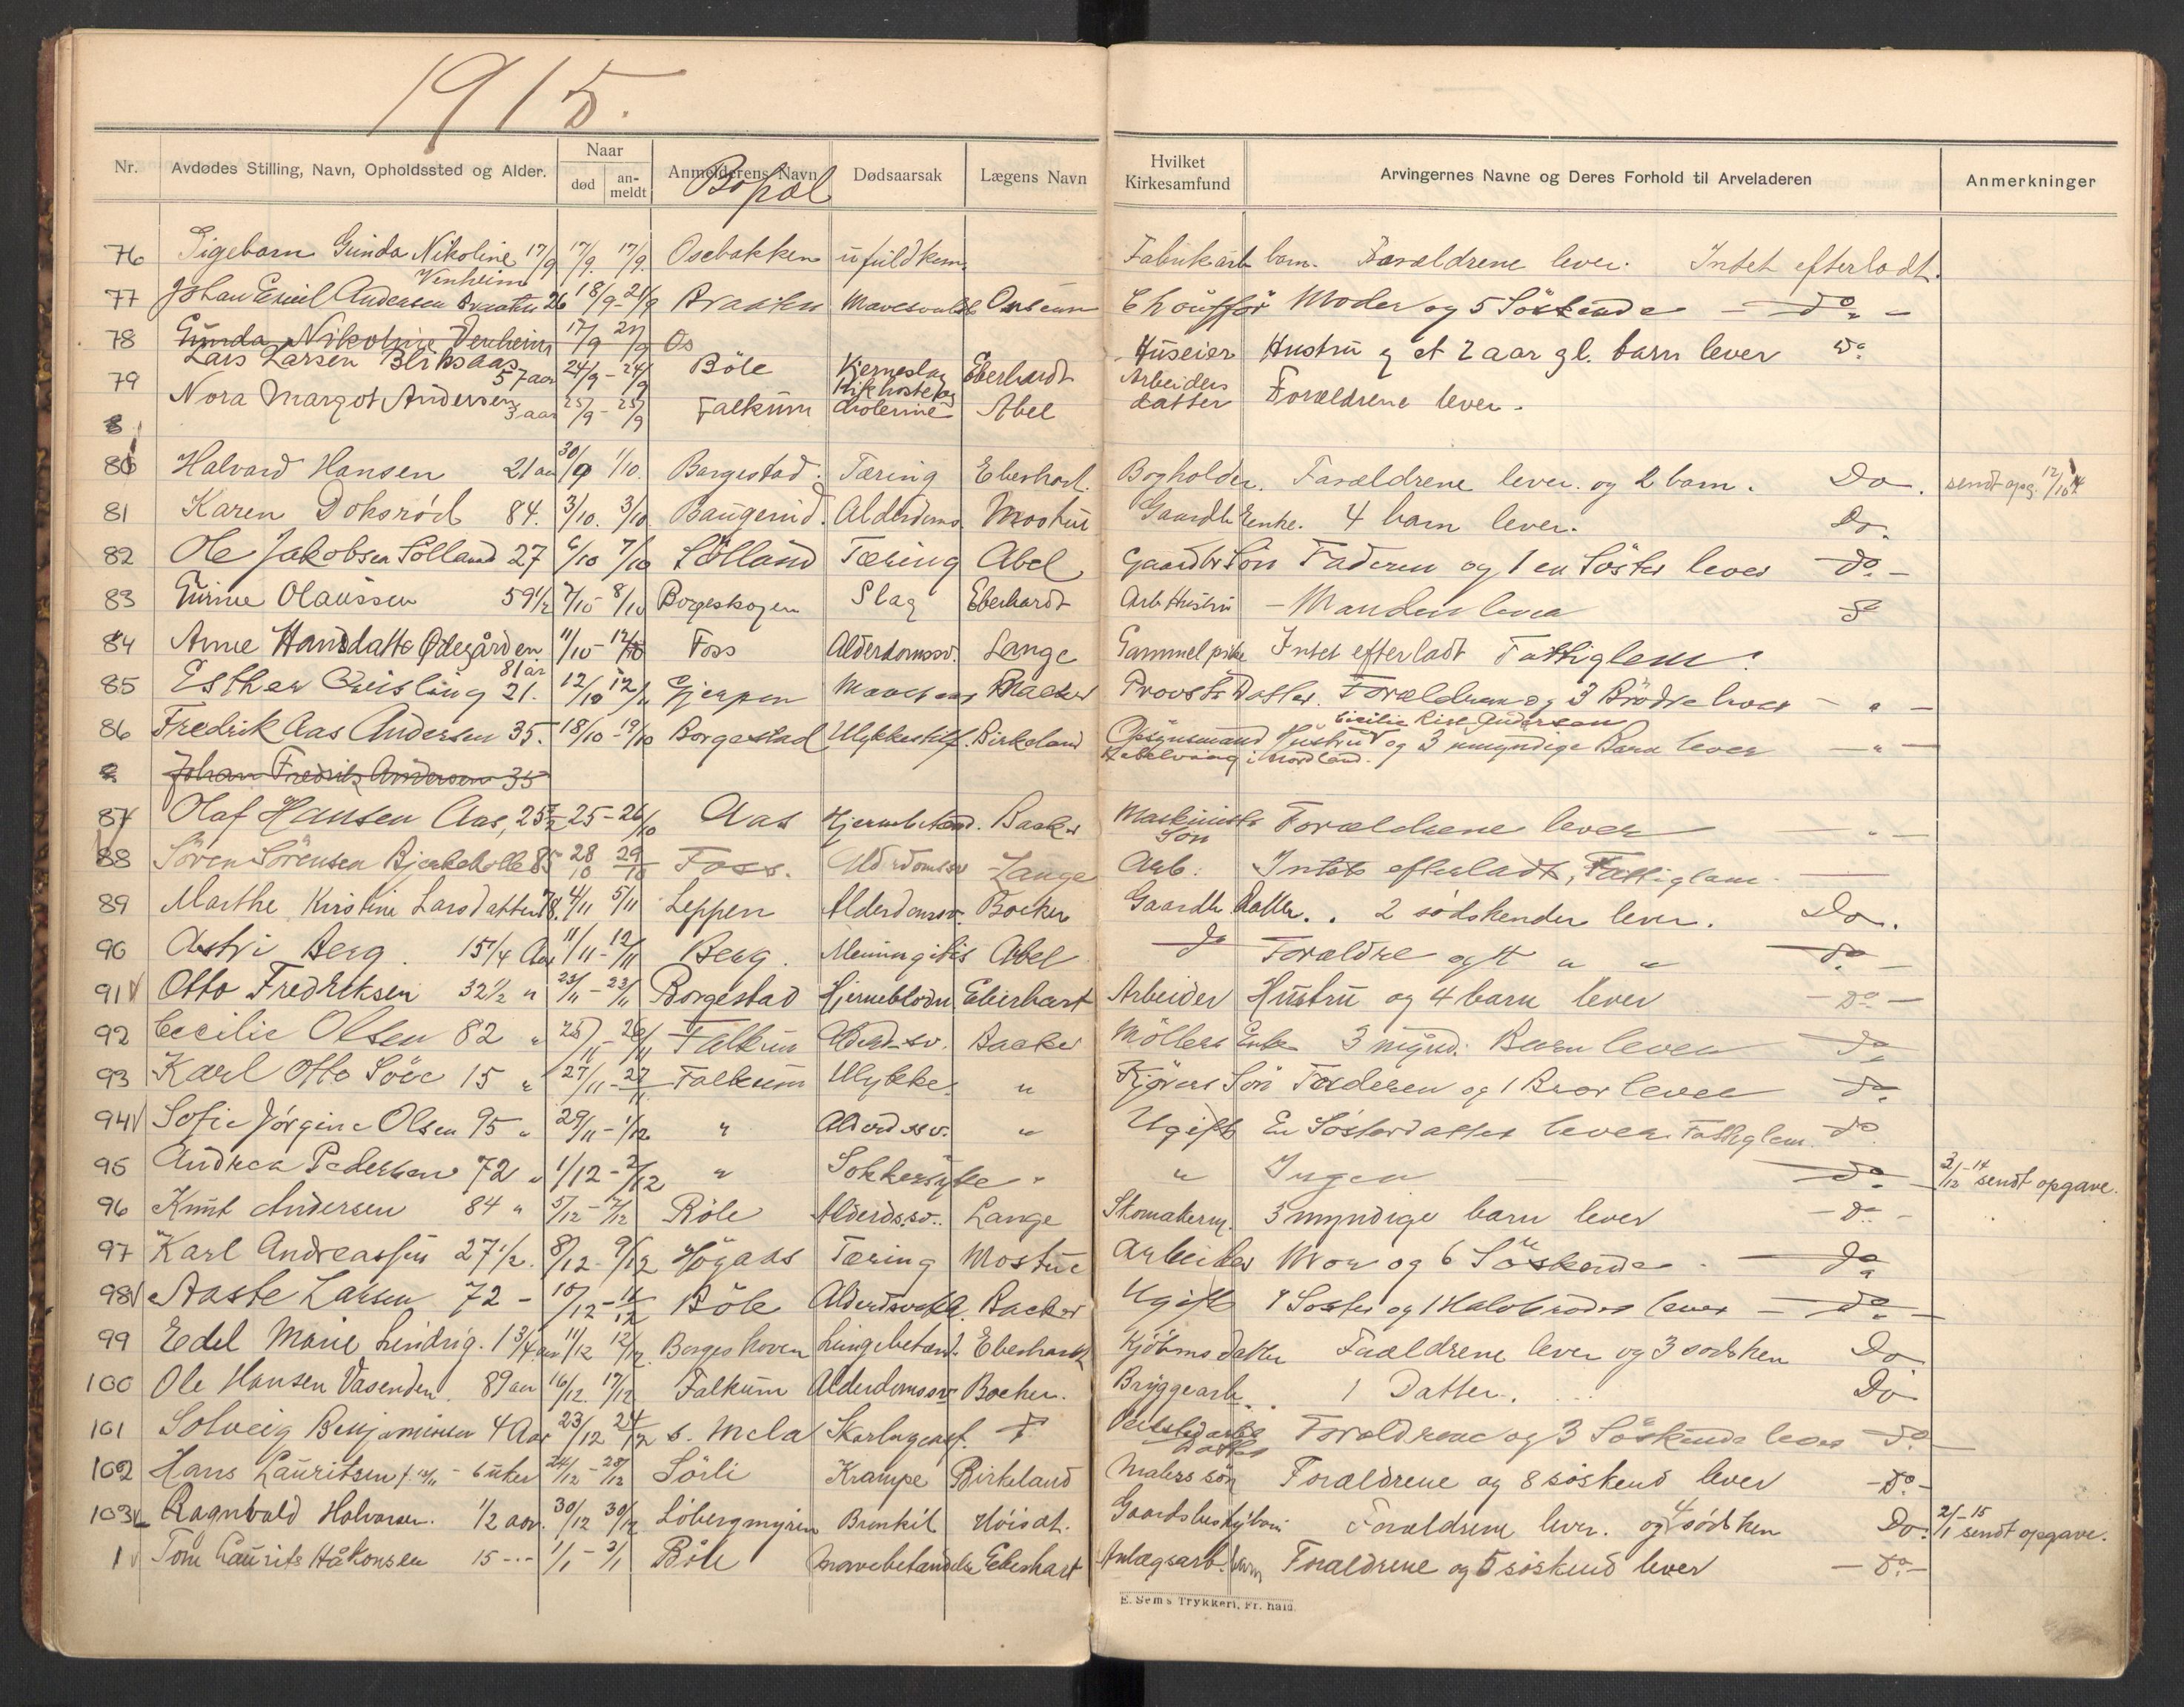 1915.
Nr. Avdødes Stilling, Navn, Opholdssted og Alder. Naar død an-meldt Anmelderens Navn Bopæl Dødsaarsak Lægens Navn Hvilket Kirkesamfund Arvingernes Navne og Deres Forhold til Arveladeren Anmerkninger
76 Pigebarn Gunda Nikoline 17/9 17/9. 17/9. Osebakken ufuldkom. Fabrikarb barn. Forældrene lever. Intet efterladt.
Venheim
77 Johan Emil Andersen 26 18/9-21/9 Mavesvulst Chouffør Moder og 5 Söskende - do -
78 Gunda Nikoline Venheim 17/9 21/9 Os
Lars Larsen Bliksaas 57 aar 24/9-24/9 Böle Eberhardt Huseier Hustru og et 2 aar gl. barn lever do
79 Nora Margot Andersen 3 aar 25/9-25/9 Falkum Kikhoste og cholerine Abel Arbeiders datter Forældrene lever.
80 Halvard Hansen 21 aar 30/9 1/10. Borgestad. Tæring Eberhard. Bogholder. Forældrene lever. og 2 barn. Do. sendt opg. 12/10 14
81 Karen Doksröd 84. 3/10. 3/10 Baugerud. Alderdoms Mostue Gaardb Enke. 4 barn lever. Do.
82 Ole Jakobsen Sölland 27 6/10 7/10 Sölland Tæring Abel Gaardbr Sön Faderen og 1 en Söster lever do -
83 Gurine Olaussen 59 1/2 7/10 8/10 Borgeskogen Slag Eberhardt Arb Hustru - Manden lever do
84 Anne Hansdatter Ødegården 81 år 11/10-12/10 Foss Alderdomssv. Lange Gammel pike Intet efterladt Fattiglem.
85 Esther Quisling 21. 12/10 12/10 Gjerpen Backer Provsts Datter. Forældrene og 3 Brödre lever - " -
86 Fredrik Aas Andersen 35. 18/10-19/10 Borgestad Ulykkestilf. Birkeland Opsynsmand Hustru Cicilie Andersen og 3 umyndige Barn lever - " -
i Nordland.
Johan Fredrik Andersen 35
87 Olaf Hansen Aas, 25-26/10 Aas Hjernebetænd. Backer Maskinists Sön Forældrene lever - " -
88 Sören Sörensen Bjerkeholt 85 28/10 29/10 Foss. Alderdomssv Lange Arb. Intet efterladt, Fattiglem.
89 Marthe Kirstine Larsdatter 78. 4/11 5/11 Leppen Alderdomssv. Backer Gaardb Datter. 2 södskender lever. Do.
90 Astri Berg. 15 1/4 Aar 11/11-12/11 Berg. Meningitis Abel do Forældre " " do -
91 Otto Fredriksen 32 1/2 " 23/11-23/11 Borgestad Hjerneblödn. Eberhart Arbeider Hustru og 4 barn lever - Do -
92 Cecilie Olsen 82 " 25/11-26/11 Falkum Alderd.sv. Backer Möllers Enke 3 mynd. Barn lever do
93 Karl Otto 15 " 27/11-27/11 Falkum Ulykke. " Kjörers Sön Faderen og 1 Bror lever do
94 Sofie Jørgine Olsen 95 " 29/11-1/12 " Alderd.ssv. " Ugift En Sösterdatter lever Fattiglem do
95 Andrea Pedersen 72 " 1/12-2/12 " Sokkersyke " " Ingen - do - 3/12-14 sendt opgave.
96 Knut Andersen 84 " 5/12-7/12 Böle Alderds.sv. Lange Skomakerm. 3 myndige barn lever - do -
97 Karl Andreassen 27 1/2. 8/12-9/12 Högaas Tæring Mostue Arbeider Mor og 6 Söskende - do
98 Aaste Larsen 72 - 10/12-11/12 Böle Alderdsvakh. Backer Ugift 1 Soster og 1 Halvbroder lever - do -
99 Edel Marie Lindrig. 1 3/4 aar 11/12 12/12. Borgeskoven Lungebetænd. Eberhardt Kjöbms datter Forældrene lever og 3 sodsken Do
100 Ole Hansen Vasenden. 89 aar 16/12. 17/12 Falkum Alderdomssv Backer. Bryggearb. 1 Datter. Do
101 Solveig Benjaminsen 4 Aar 23/12 24/12 s. Mela Skarlagensf. datter Forældrene og 3 Söskende lever do -
102 Hans Lauritsen - 6 uker 24/12-28/12 Sörli Krampe Birkeland Malers sön Forældrene og 8 söskend lever - Do -
103 Ragnvald Halvorsen. 1/2 aar. 30/12 30/12 Löbergmyren Bronkit Höisæt. Gaardsbestyrbarn Forældrene lever. og 4 sødsken Do. 2/1-15 sendt opgave.
1 Tom Laurits Håkonsen 15 --- 1/1-2/1 Böle Mavebetændelse Eberhart Anlægsarb. barn Forældrene og 5 söskend lever - do -
E. Sem's Trykkeri, Fr.hald.